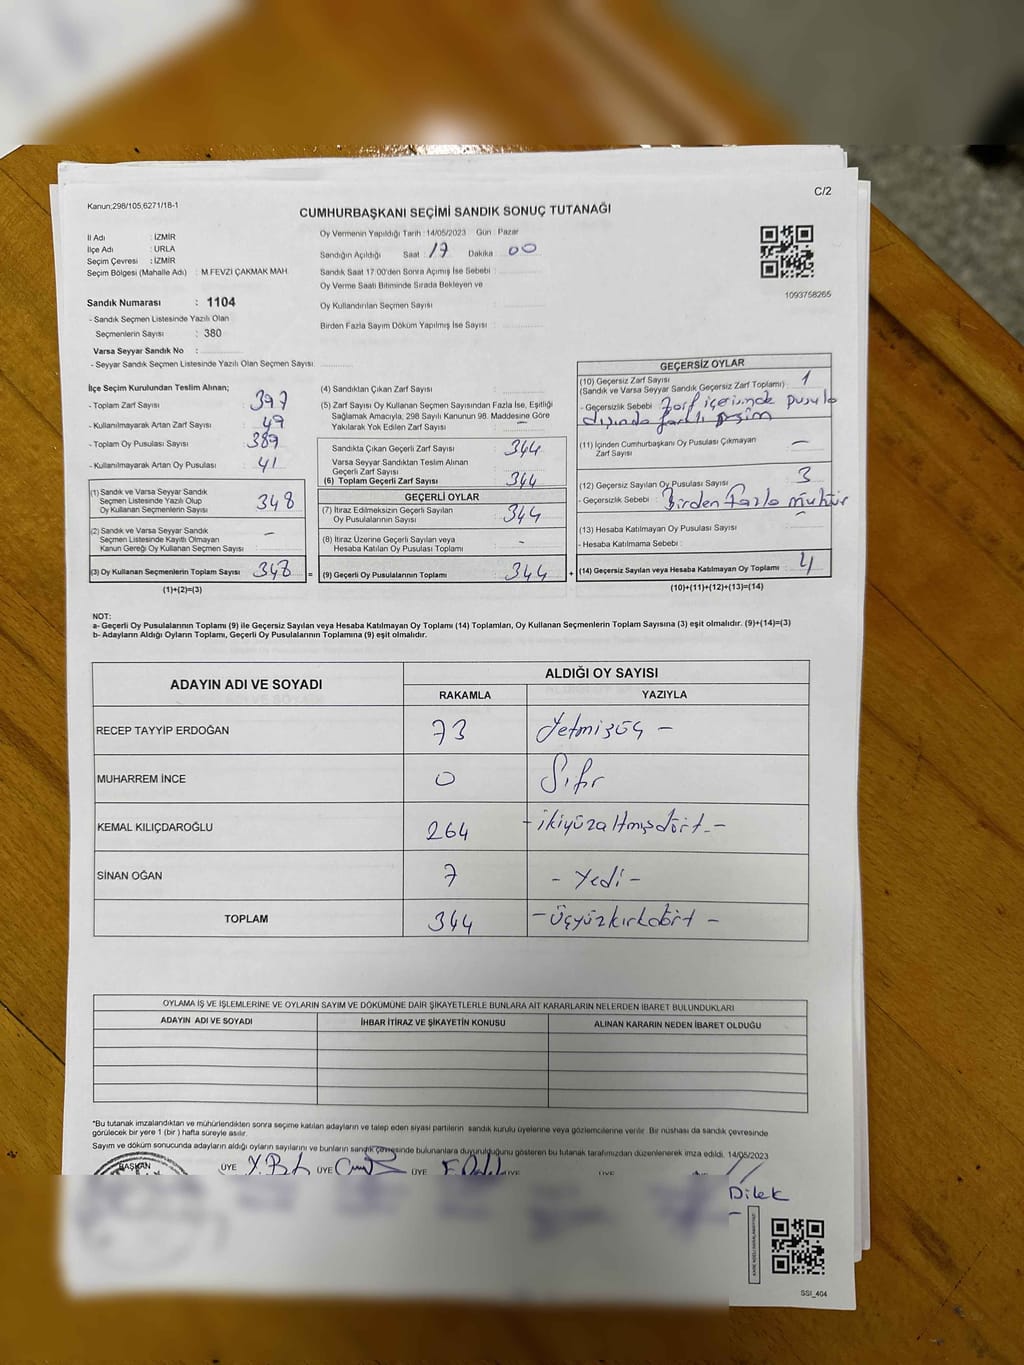 C/2
Kanun;298/105,6271/18-1
CUMHURBAŞKANI SEÇİMİ SANDIK SONUÇ TUTANAĞI
İl Adı : İZMİR
İlçe Adı : URLA
Seçim Çevresi : İZMİR
Seçim Bölgesi (Mahalle Adı) : M.FEVZİ ÇAKMAK MAH.
Oy Vermenin Yapıldığı Tarih : 14/05/2023 Gün : Pazar
Sandığın Açıldığı Saat : 17 Dakika : 00
Sandık Saat 17:00'den Sonra Açımış İse Sebebi :
Oy Verme Saati Bitiminde Sırada Bekleyen ve
Oy Kullandırılan Seçmen Sayısı :
Birden Fazla Sayım Döküm Yapılmış İse Sayısı :
1093758265
Sandık Numarası : 1104
- Sandık Seçmen Listesinde Yazılı Olan
Seçmenlerin Sayısı : 380
Varsa Seyyar Sandık No :
- Seyyar Sandık Seçmen Listesinde Yazılı Olan Seçmen Sayısı :
İlçe Seçim Kurulundan Teslim Alınan;
- Toplam Zarf Sayısı : 397
- Kullanılmayarak Artan Zarf Sayısı : 49
- Toplam Oy Pusulası Sayısı : 389
- Kullanılmayarak Artan Oy Pusulası : 41
(1) Sandık ve Varsa Seyyar Sandık
Seçmen Listesinde Yazılı Olup
Oy Kullanan Seçmenlerin Sayısı : 348
(2) Sandık ve Varsa Seyyar Sandık
Seçmen Listesinde Kayıtlı Olmayan
Kanun Gereği Oy Kullanan Seçmen Sayısı : -
(3) Oy Kullanan Seçmenlerin Toplam Sayısı : 348 =
(1)+(2)=(3)
(4) Sandıktan Çıkan Zarf Sayısı :
(5) Zarf Sayısı Oy Kullanan Seçmen Sayısından Fazla İse, Eşitliği
Sağlamak Amacıyla, 298 Sayılı Kanunun 98. Maddesine Göre
Yakılarak Yok Edilen Zarf Sayısı : -
Sandıkta Çıkan Geçerli Zarf Sayısı : 344
Varsa Seyyar Sandıktan Teslim Alınan
Geçerli Zarf Sayısı :
(6) Toplam Geçerli Zarf Sayısı : 344
GEÇERLİ OYLAR
(7) İtiraz Edilmeksizin Geçerli Sayılan
Oy Pusulalarının Sayısı : 344
(8) İtiraz Üzerine Geçerli Sayılan veya
Hesaba Katılan Oy Pusulası Toplamı : -
(9) Geçerli Oy Pusulalarının Toplamı : 344 +
GEÇERSİZ OYLAR
(10) Geçersiz Zarf Sayısı
(Sandık ve Varsa Seyyar Sandık Geçersiz Zarf Toplamı) : 1
- Geçersizlik Sebebi : Zarf içerisinde pusula
dışında farklı
(11) İçinden Cumhurbaşkanı Oy Pusulası Çıkmayan
Zarf Sayısı : -
(12) Geçersiz Sayılan Oy Pusulası Sayısı : 3
- Geçersizlik Sebebi : Birden fazla mühür
(13) Hesaba Katılmayan Oy Pusulası Sayısı : -
- Hesaba Katılmama Sebebi :
(14) Geçersiz Sayılan veya Hesaba Katılmayan Oy Toplamı : 4
(10)+(11)+(12)+(13)=(14)
NOT:
a- Geçerli Oy Pusulalarının Toplamı (9) ile Geçersiz Sayılan veya Hesaba Katılmayan Oy Toplamı (14) Toplamları, Oy Kullanan Seçmenlerin Toplam Sayısına (3) eşit olmalıdır. (9)+(14)=(3)
b- Adayların Aldığı Oyların Toplamı, Geçerli Oy Pusulalarının Toplamına (9) eşit olmalıdır.
ADAYIN ADI VE SOYADI
ALDIĞI OY SAYISI
RAKAMLA YAZIYLA
RECEP TAYYİP ERDOĞAN 73 Yetmişüç -
MUHARREM İNCE 0 Sıfır
KEMAL KILIÇDAROĞLU 264 - ikiyüzaltmışdört -
SİNAN OĞAN 7 - Yedi -
TOPLAM 344 - Üçyüzkırkdört -
OYLAMA İŞ VE İŞLEMLERİNE VE OYLARIN SAYIM VE DÖKÜMÜNE DAİR ŞİKAYETLERLE BUNLARA AİT KARARLARIN NELERDEN İBARET BULUNDUKLARI
ADAYIN ADI VE SOYADI İHBAR İTİRAZ VE ŞİKAYETİN KONUSU ALINAN KARARIN NEDEN İBARET OLDUĞU
*Bu tutanak imzalandıktan ve mühürlendikten sonra seçime katılan adayların ve talep eden siyasi partilerin sandık kurulu üyelerine veya gözlemcilerine verilir. Bir nüshası da sandık çevresinde
görülecek bir yere 1 (bir) hafta süreyle asılır.
Sayım ve döküm sonucunda adayların aldığı oyların sayılarını ve bunların sandık çevresinde bulunanlara duyurulduğunu gösteren bu tutanak tarafımızdan düzenlenerek imza edildi. 14/05/2023
BAŞKAN ÜYE ÜYE ÜYE ÜYE ÜYE
Dilek
SSI_404